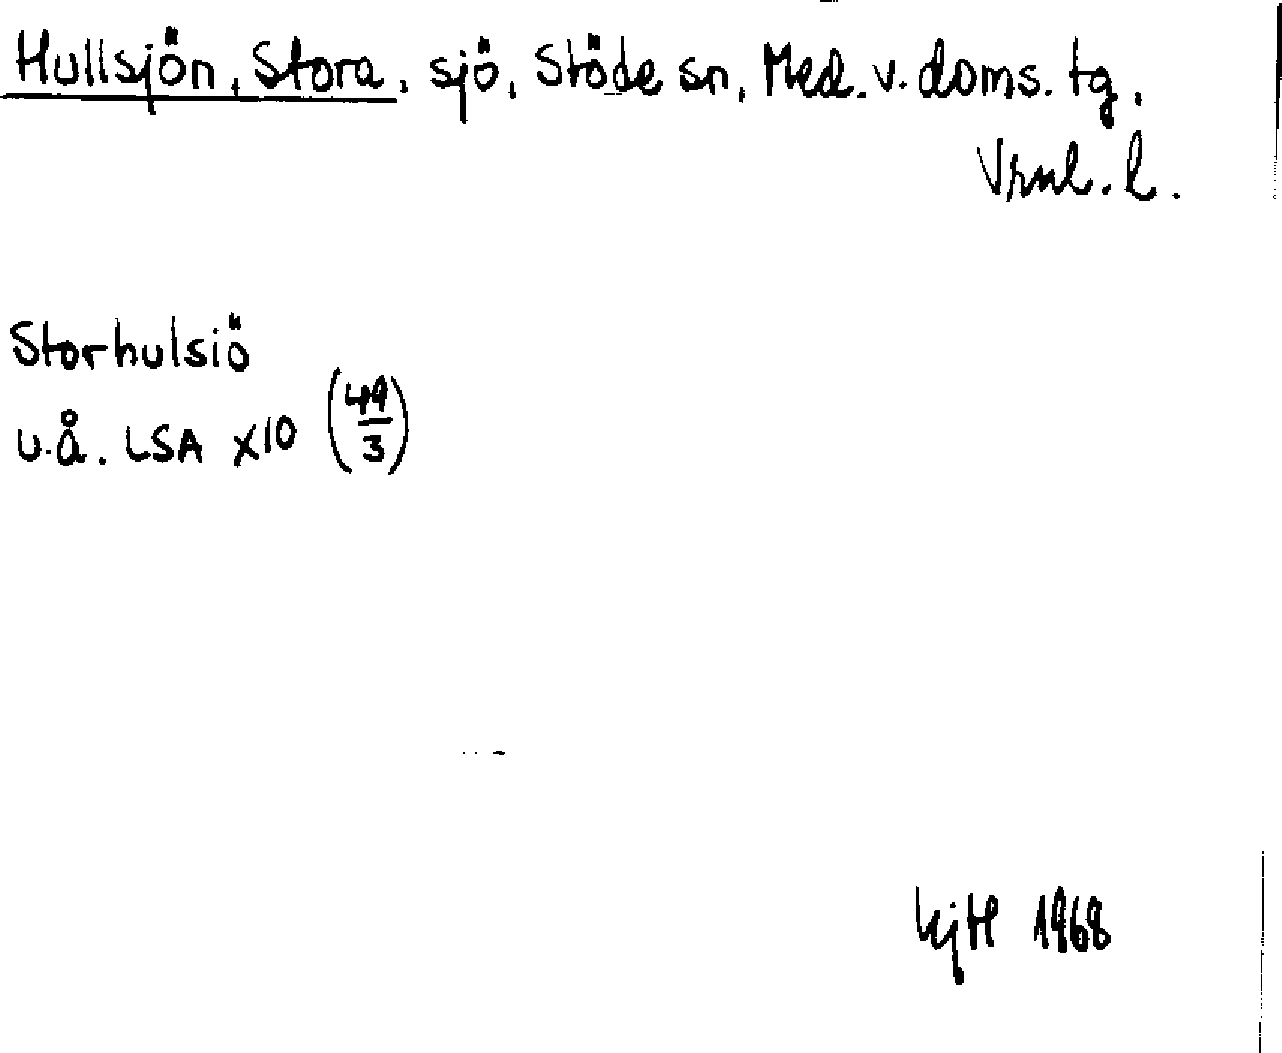 Hullsjön, Stora, sjö, Stöde sn, Med. v. doms. tg,
Vrnl. l.
Storhulsiö
u.å. LSA X10 (49/3)
1968